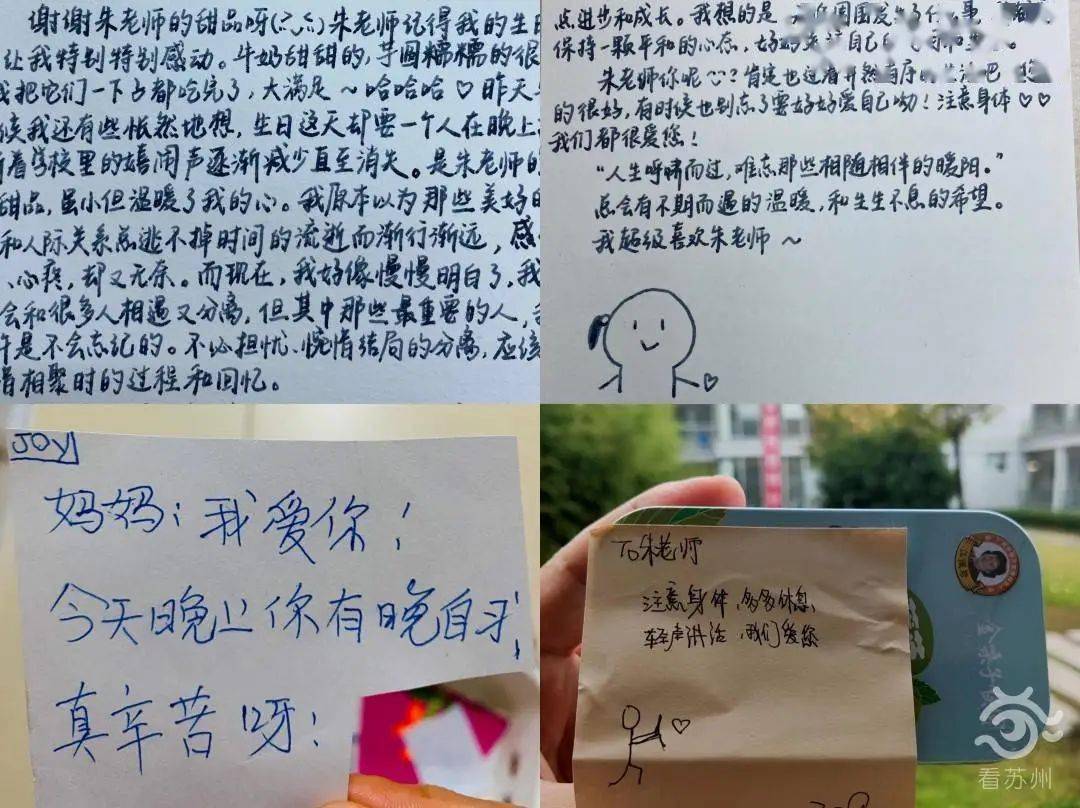 谢谢朱老师的甜品呀(六六)朱老师记得我的生日
让我特别特别感动。牛奶甜甜的,芋圆糯糯的很
我把它们一下子都吃完了,大满足~哈哈哈♡昨天
候我还有些怅然地想,生日这天却要一个人在晚上
听着学校里的嬉闹声逐渐减少直至消失。是朱老师的
甜品,虽小但温暖了我的心。我原本以为那些美好的
和人际关系总逃不掉时间的流逝而渐行渐远,感
、心疼,却又无奈。而现在,我好像慢慢明白了,我
会和很多人相遇又分离,但其中那些最重要的人,
许是不会忘记的。不必担忧、惋惜结局的分离,应该
着相聚时的过程和回忆。
点进步和成长。我想的是
保持一颗平和的心态,好好
朱老师你呢♡?肯定也过着井然有序的生活吧
的很好,有时候也别忘了要好好爱自己呦!注意身体♡♡
我们都很爱您!
“人生呼啸而过,难忘那些相随相伴的暖阳。”
总会有不期而遇的温暖,和生生不息的希望。
我超级喜欢朱老师~
JOY
妈妈:我爱你!
今天晚上你有晚自习,
真辛苦呀!
To朱老师
注意身体,多多休息,
轻声讲话,我们爱您
看苏州